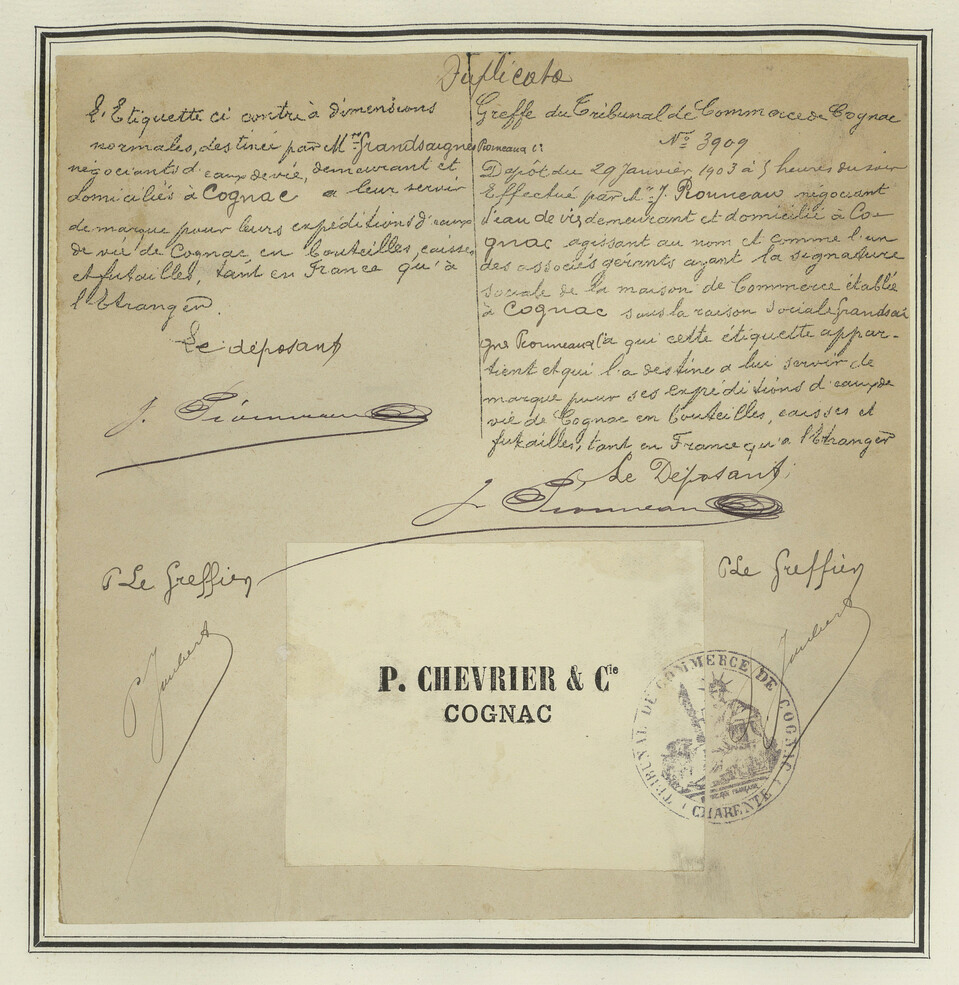 Duplicata
L'Etiquette ci contre à dimensions
normales, destinée par Mrs Grandsaigne Pionneau Cie
négociants d'eaux de vie, demeurant et
domiciliés à Cognac a leur servir
de marque pour leurs expéditions d'eaux
de vie de Cognac, en bouteilles, caisses
et futailles, tant en France qu'à
l'Etranger.
Le déposant
J. Pionneau
Greffe du Tribunal de Commerce de Cognac
No 3909
Dépôt du 29 Janvier 1903 à 5 heures du soir
Effectué par Mr J. Pionneau négociant
d'eau de vie, demeurant et domicilié à Co-
gnac agissant au nom et comme l'un
des associés gérants ayant la signature
sociale de la maison de Commerce établie
à Cognac sous la raison sociale Grandsai
gne Pionneau Cie à qui cette étiquette appar-
tient et qui l'a destine a lui servir de
marque pour ses expéditions d'eaux de
vie de Cognac en bouteilles, caisses et
futailles, tant en France qu'a l'Etranger
Le Déposant,
J. Pionneau
P Le Greffier
P Jaubert
P Le Greffier
Jaubert
P. CHEVRIER & Cie
COGNAC
TRIBUNAL DE COMMERCE DE COGNAC
CHARENTE